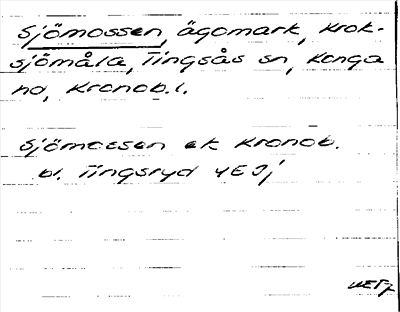 Sjömossen, ägomark, Krok-
sjömåla, Tingsås sn, Konga
hd, Kronob.l.
Sjömossen ek Kronob.
bl. Tingsryd 4E 9j